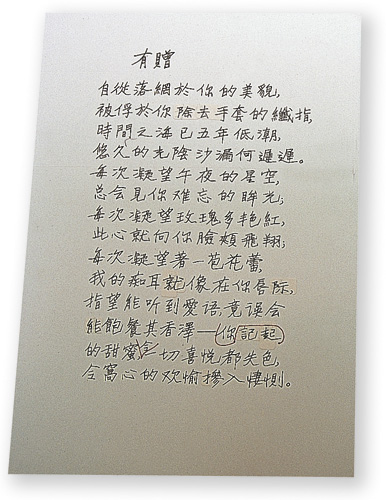 有赠
自從落網於你的美貌,
被俘於你除去手套的纖指,
時間之海已五年低潮,
悠久的光陰沙漏何遲遲。
每次凝望午夜的星空,
总会見你难忘的眸光;
每次凝望玫瑰多艳紅,
此心就向你臉頰飛翔;
每次凝望著一苞花蕾,
我的痴耳就像在你唇际,
指望能听到愛語,竟误会
能飽餐其香澤——你記起
的甜蜜令一切喜悅都失色,
令窩心的欢愉摻入悽惻。